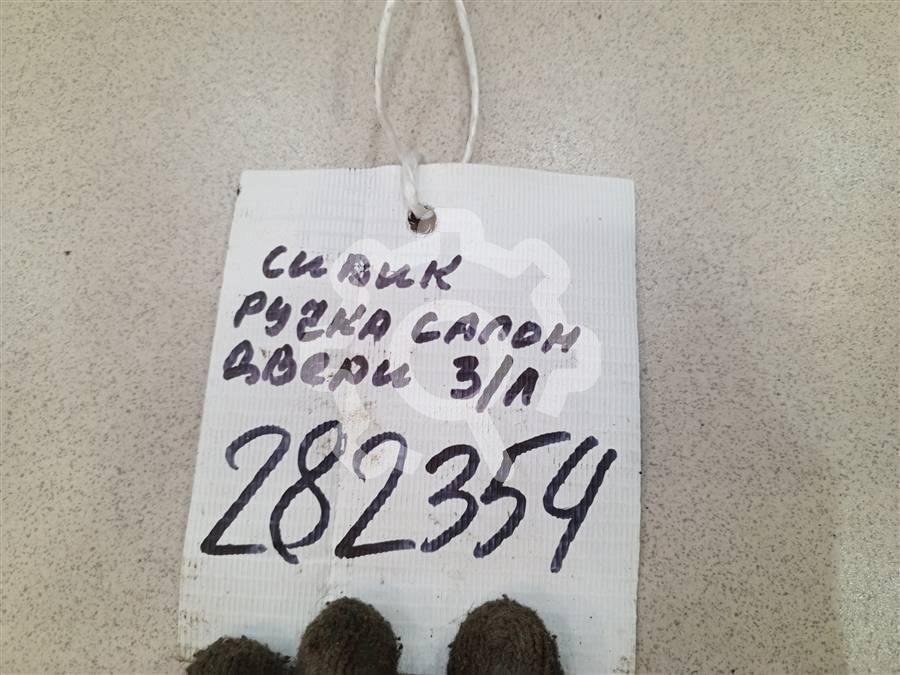 СИВИК
РУЧКА САЛОН
ДВЕРИ З/Л
282354